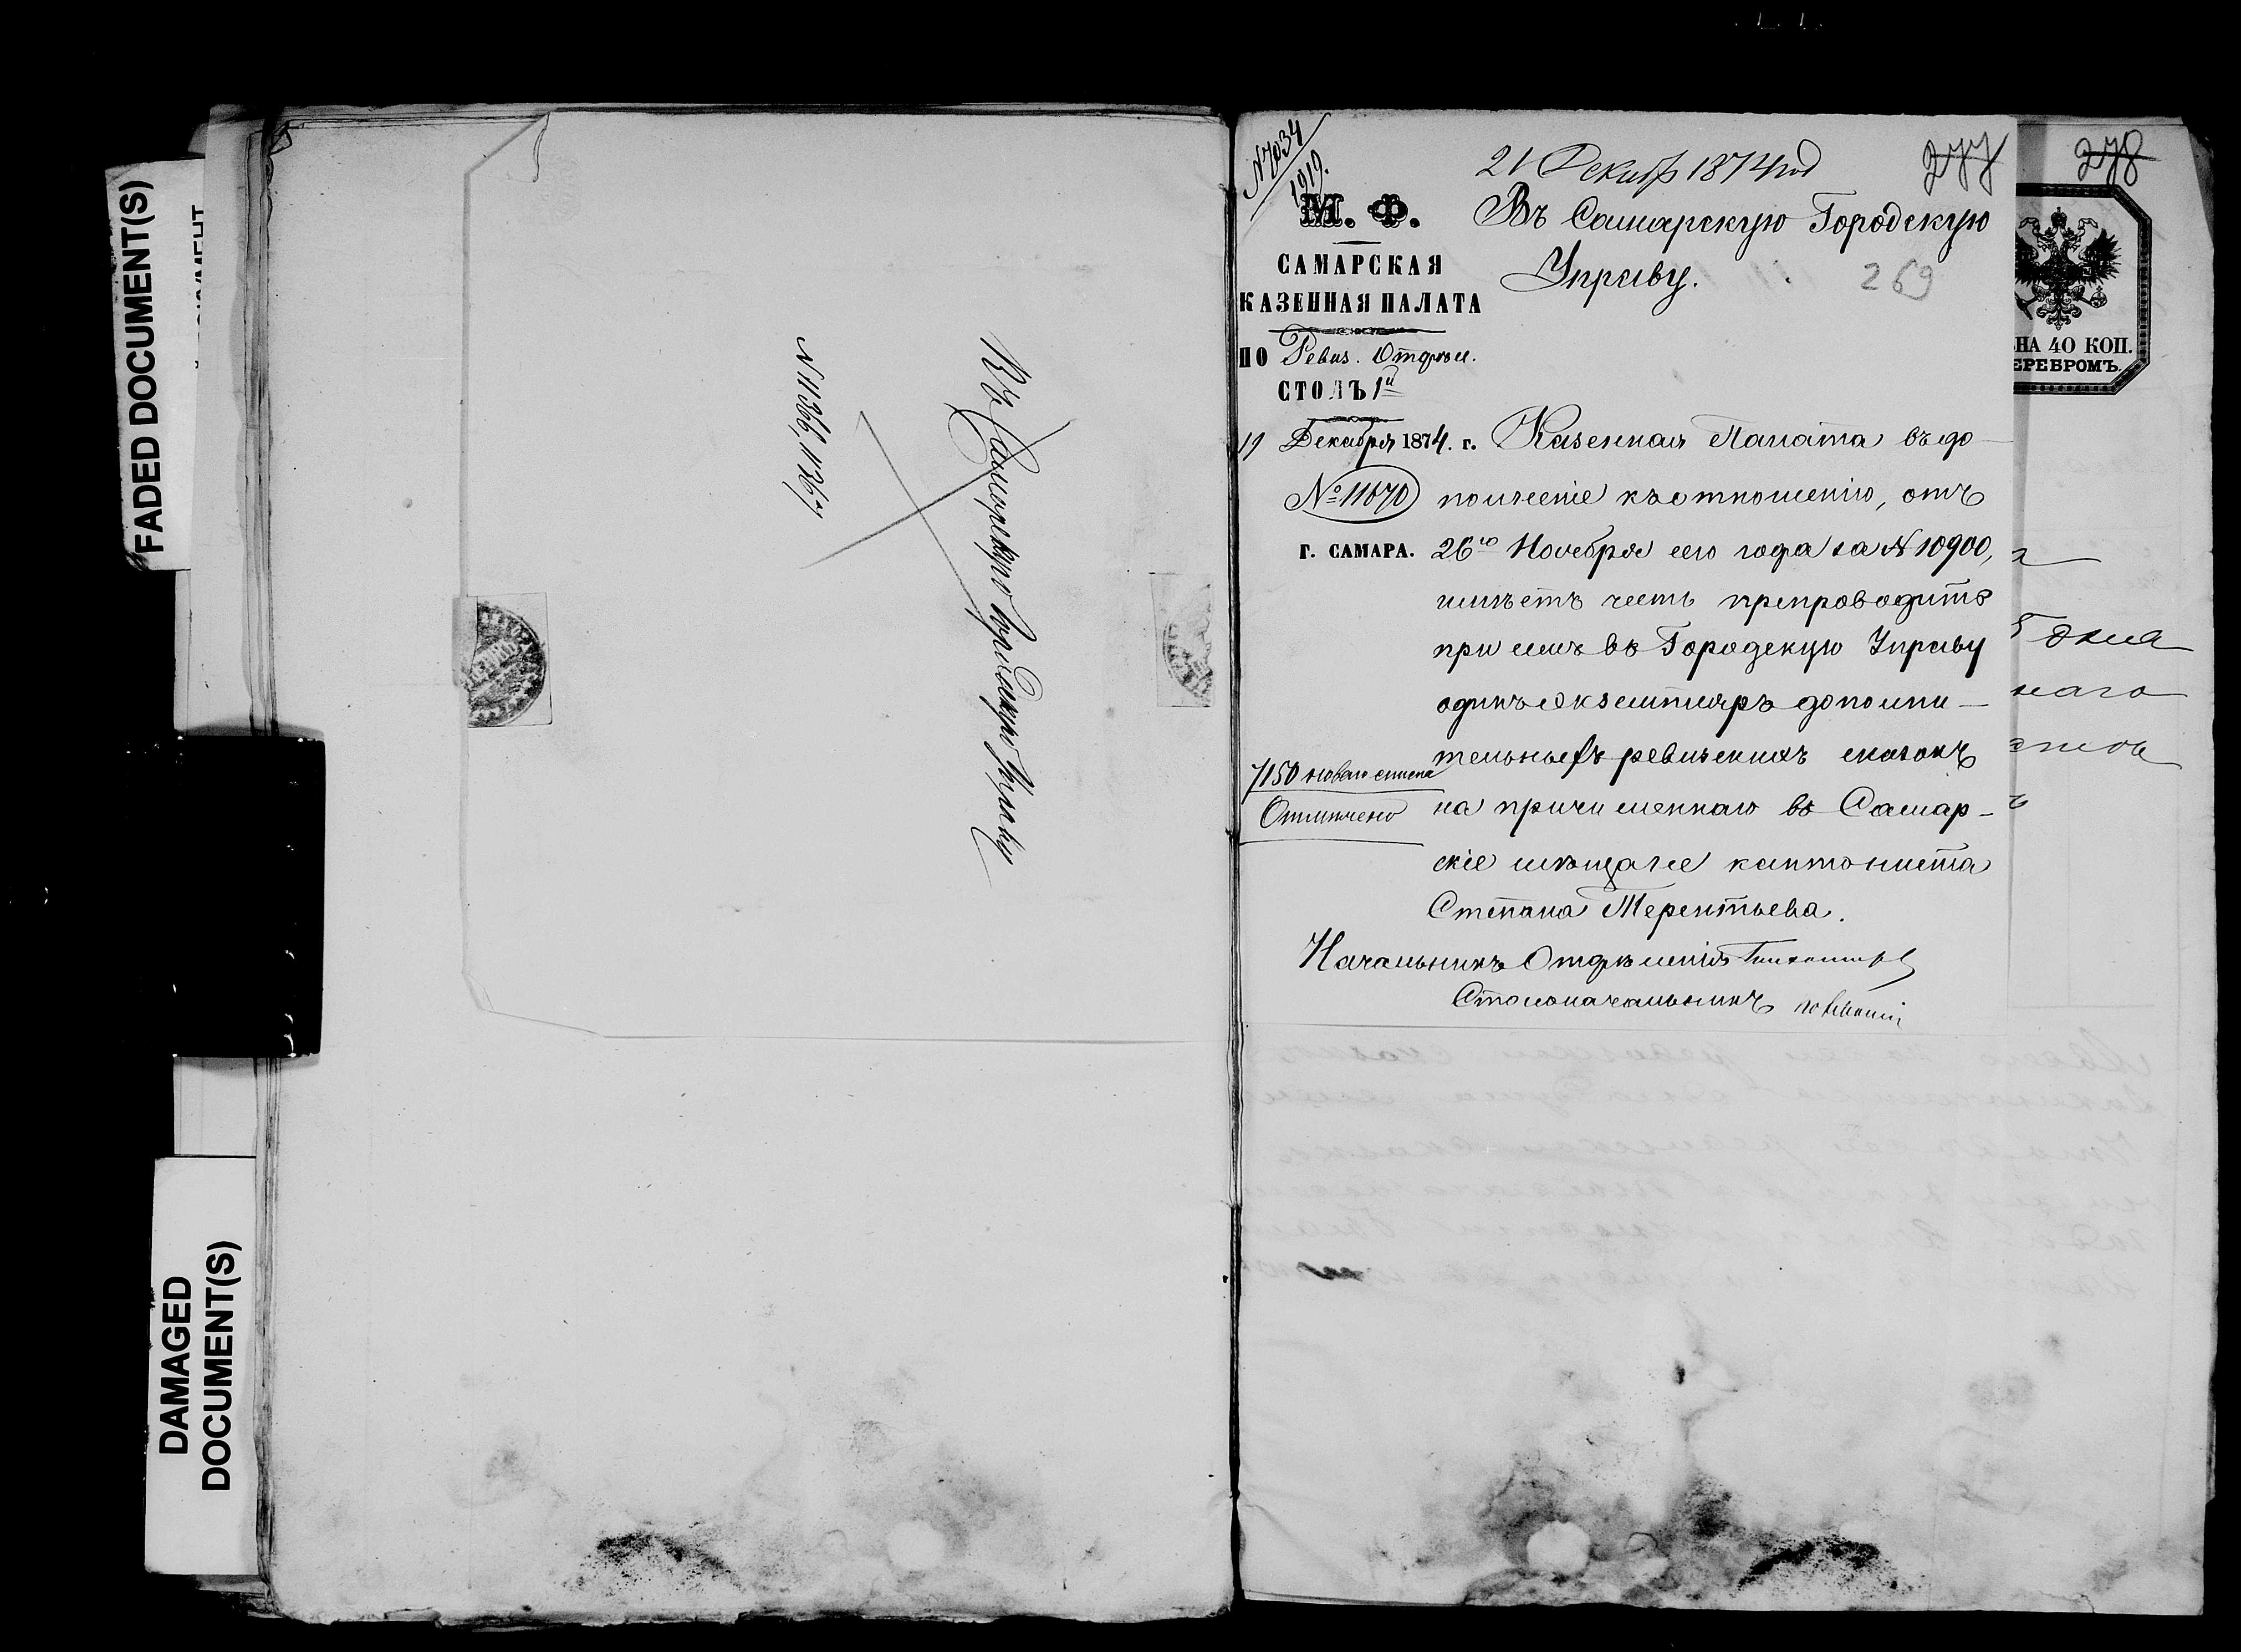 FADED DOCUMENT(S)
DAMAGED
DOCUMENT(S)
Въ Самарскую Городскую Управу
N 11366, 11367
N 7034
1919.
21 Декабр 1874 год
277
278
М. Ф.
Въ Самарскую Городскую
Управу.
269
САМАРСКАЯ
КАЗЕННАЯ ПАЛАТА
ПО Ревиз. Отдѣл.
СТОЛЪ 1й
НА 40 КОП.
ЕРЕБРОМЪ.
19 Декабря 1874. г.
№ 11070
Г. САМАРА.
Казенная Палата въ до-
полненіе къ отношенію, отъ
26го Ноября сего года за N 10900,
имѣетъ честь препроводить
при семъ въ Городскую Управу
одинъ экземпляръ дополни-
тельныхъ ревизскихъ сказокъ
на причисленнаго въ Самар-
скіе мѣщане кантониста
Степана Терентьева.
7150 новаго списка
Отмѣчено
Начальникъ Отдѣленія
Столоначальникъ
дня
наго